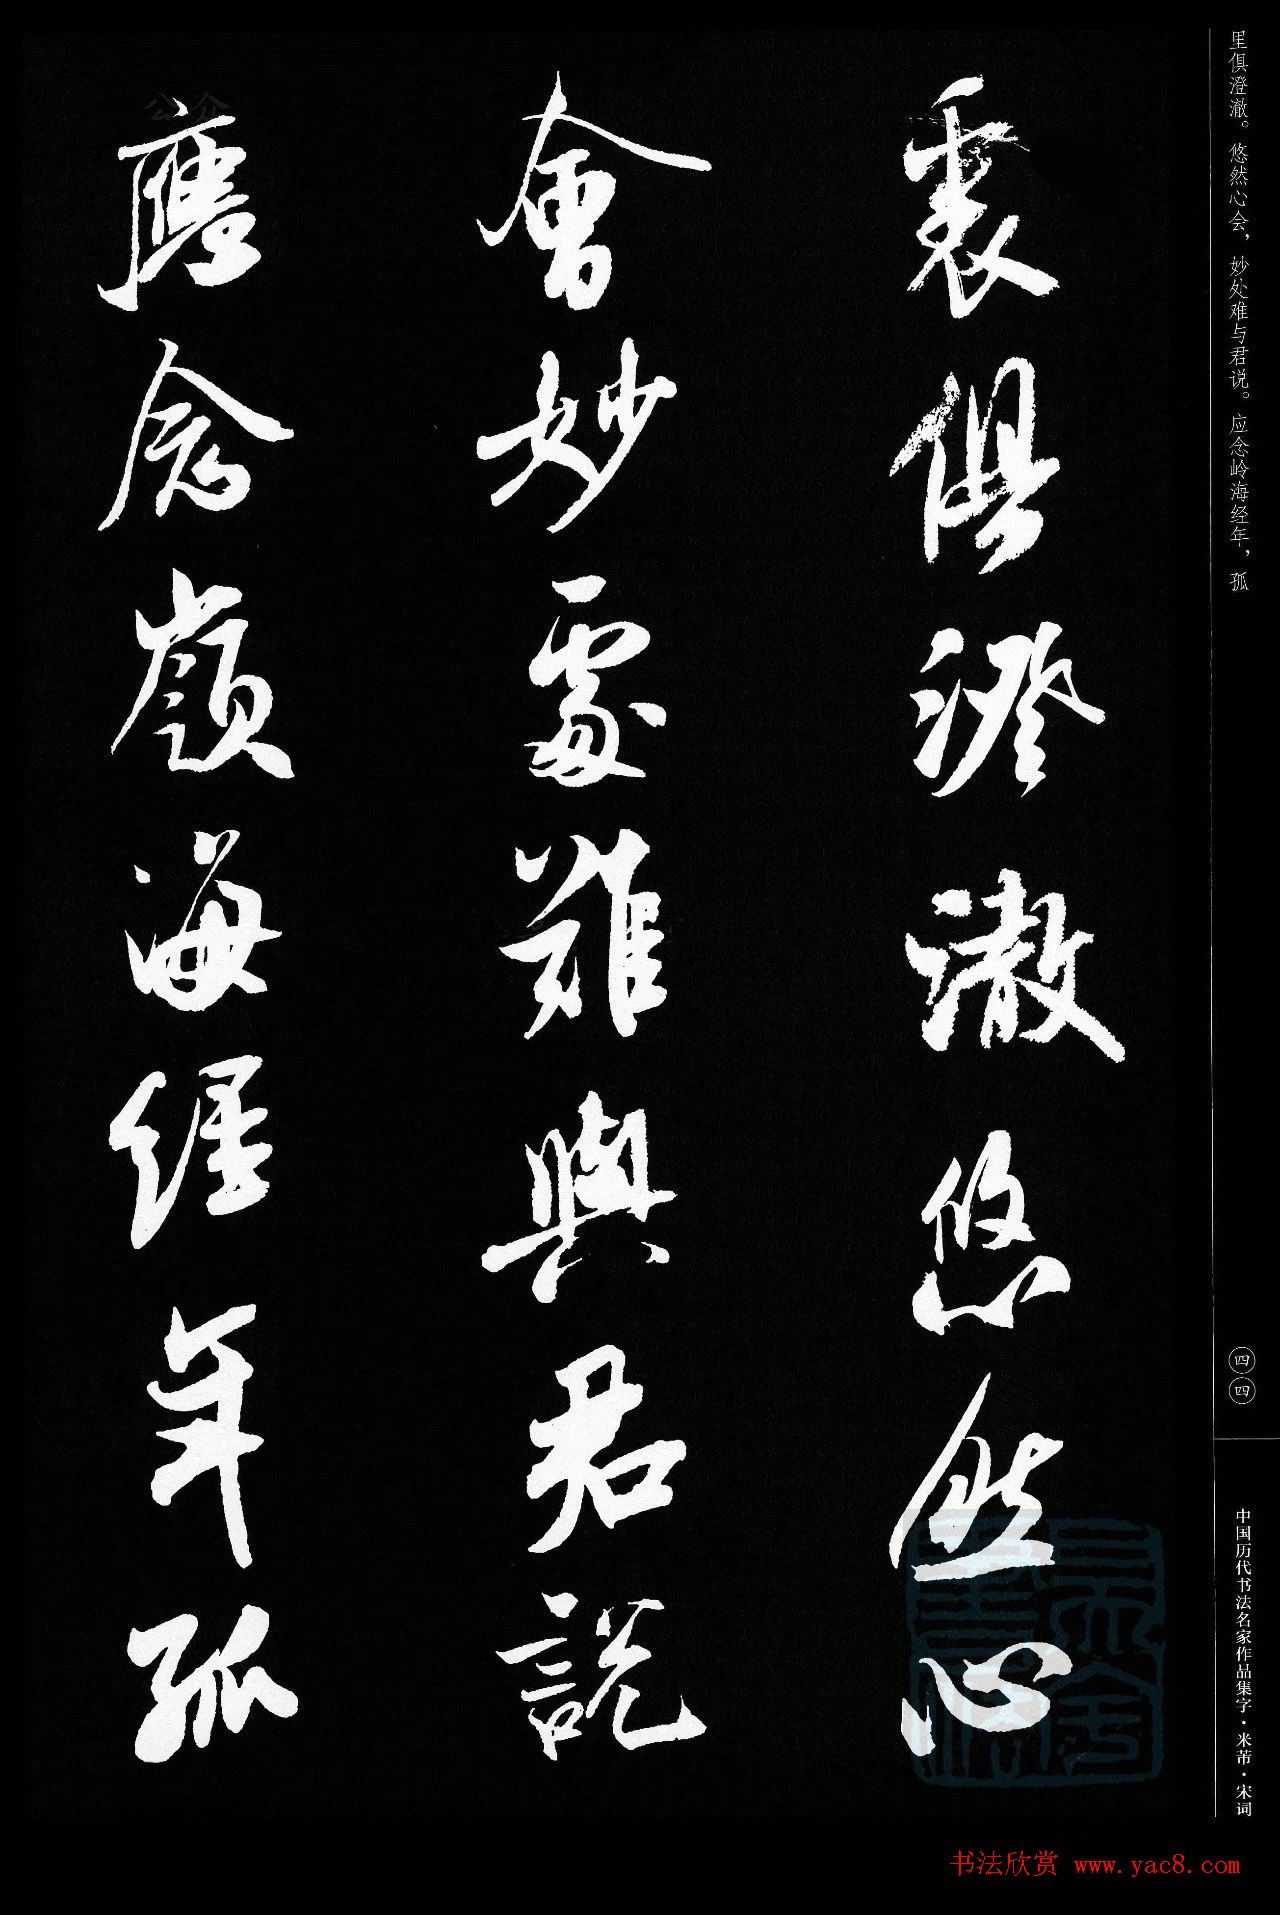 里俱澄澈。悠然心会，妙处难与君说。应念岭海经年，孤
裏俱澄澈悠然心
會妙處難與君說
應念嶺海經年孤
四四
中国历代书法名家作品集字·米芾·宋词
书法欣赏 www.yac8.com